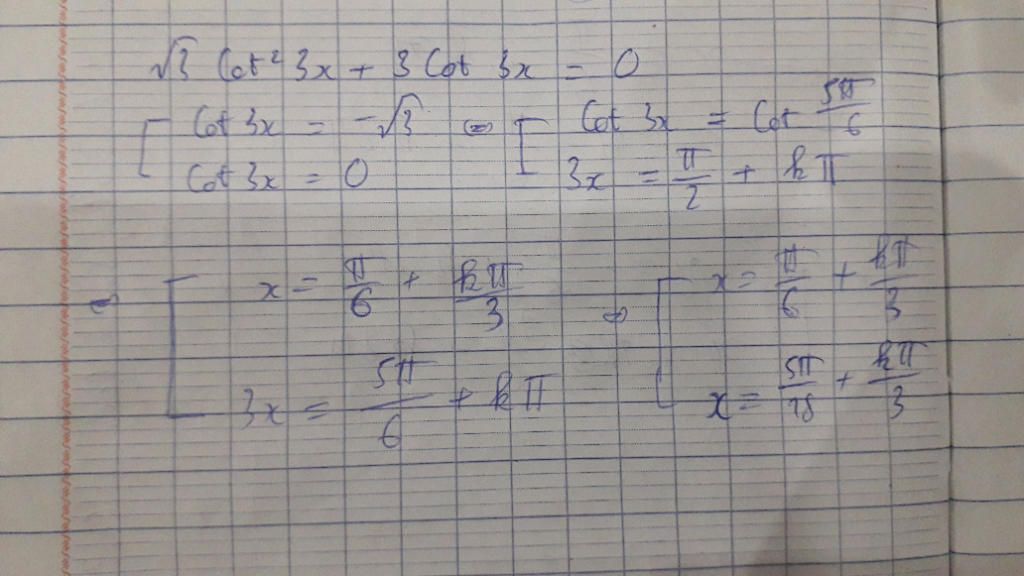 √3 Cot² 3x + 3 Cot 3x = 0
[ Cot 3x = -√3 ⇔ [ Cot 3x = Cot 5π/6
Cot 3x = 0 3x = π/2 + kπ
⇔ [ x = π/6 + kπ/3 ⇔ [ x = π/6 + kπ/3
3x = 5π/6 + kπ x = 5π/18 + kπ/3